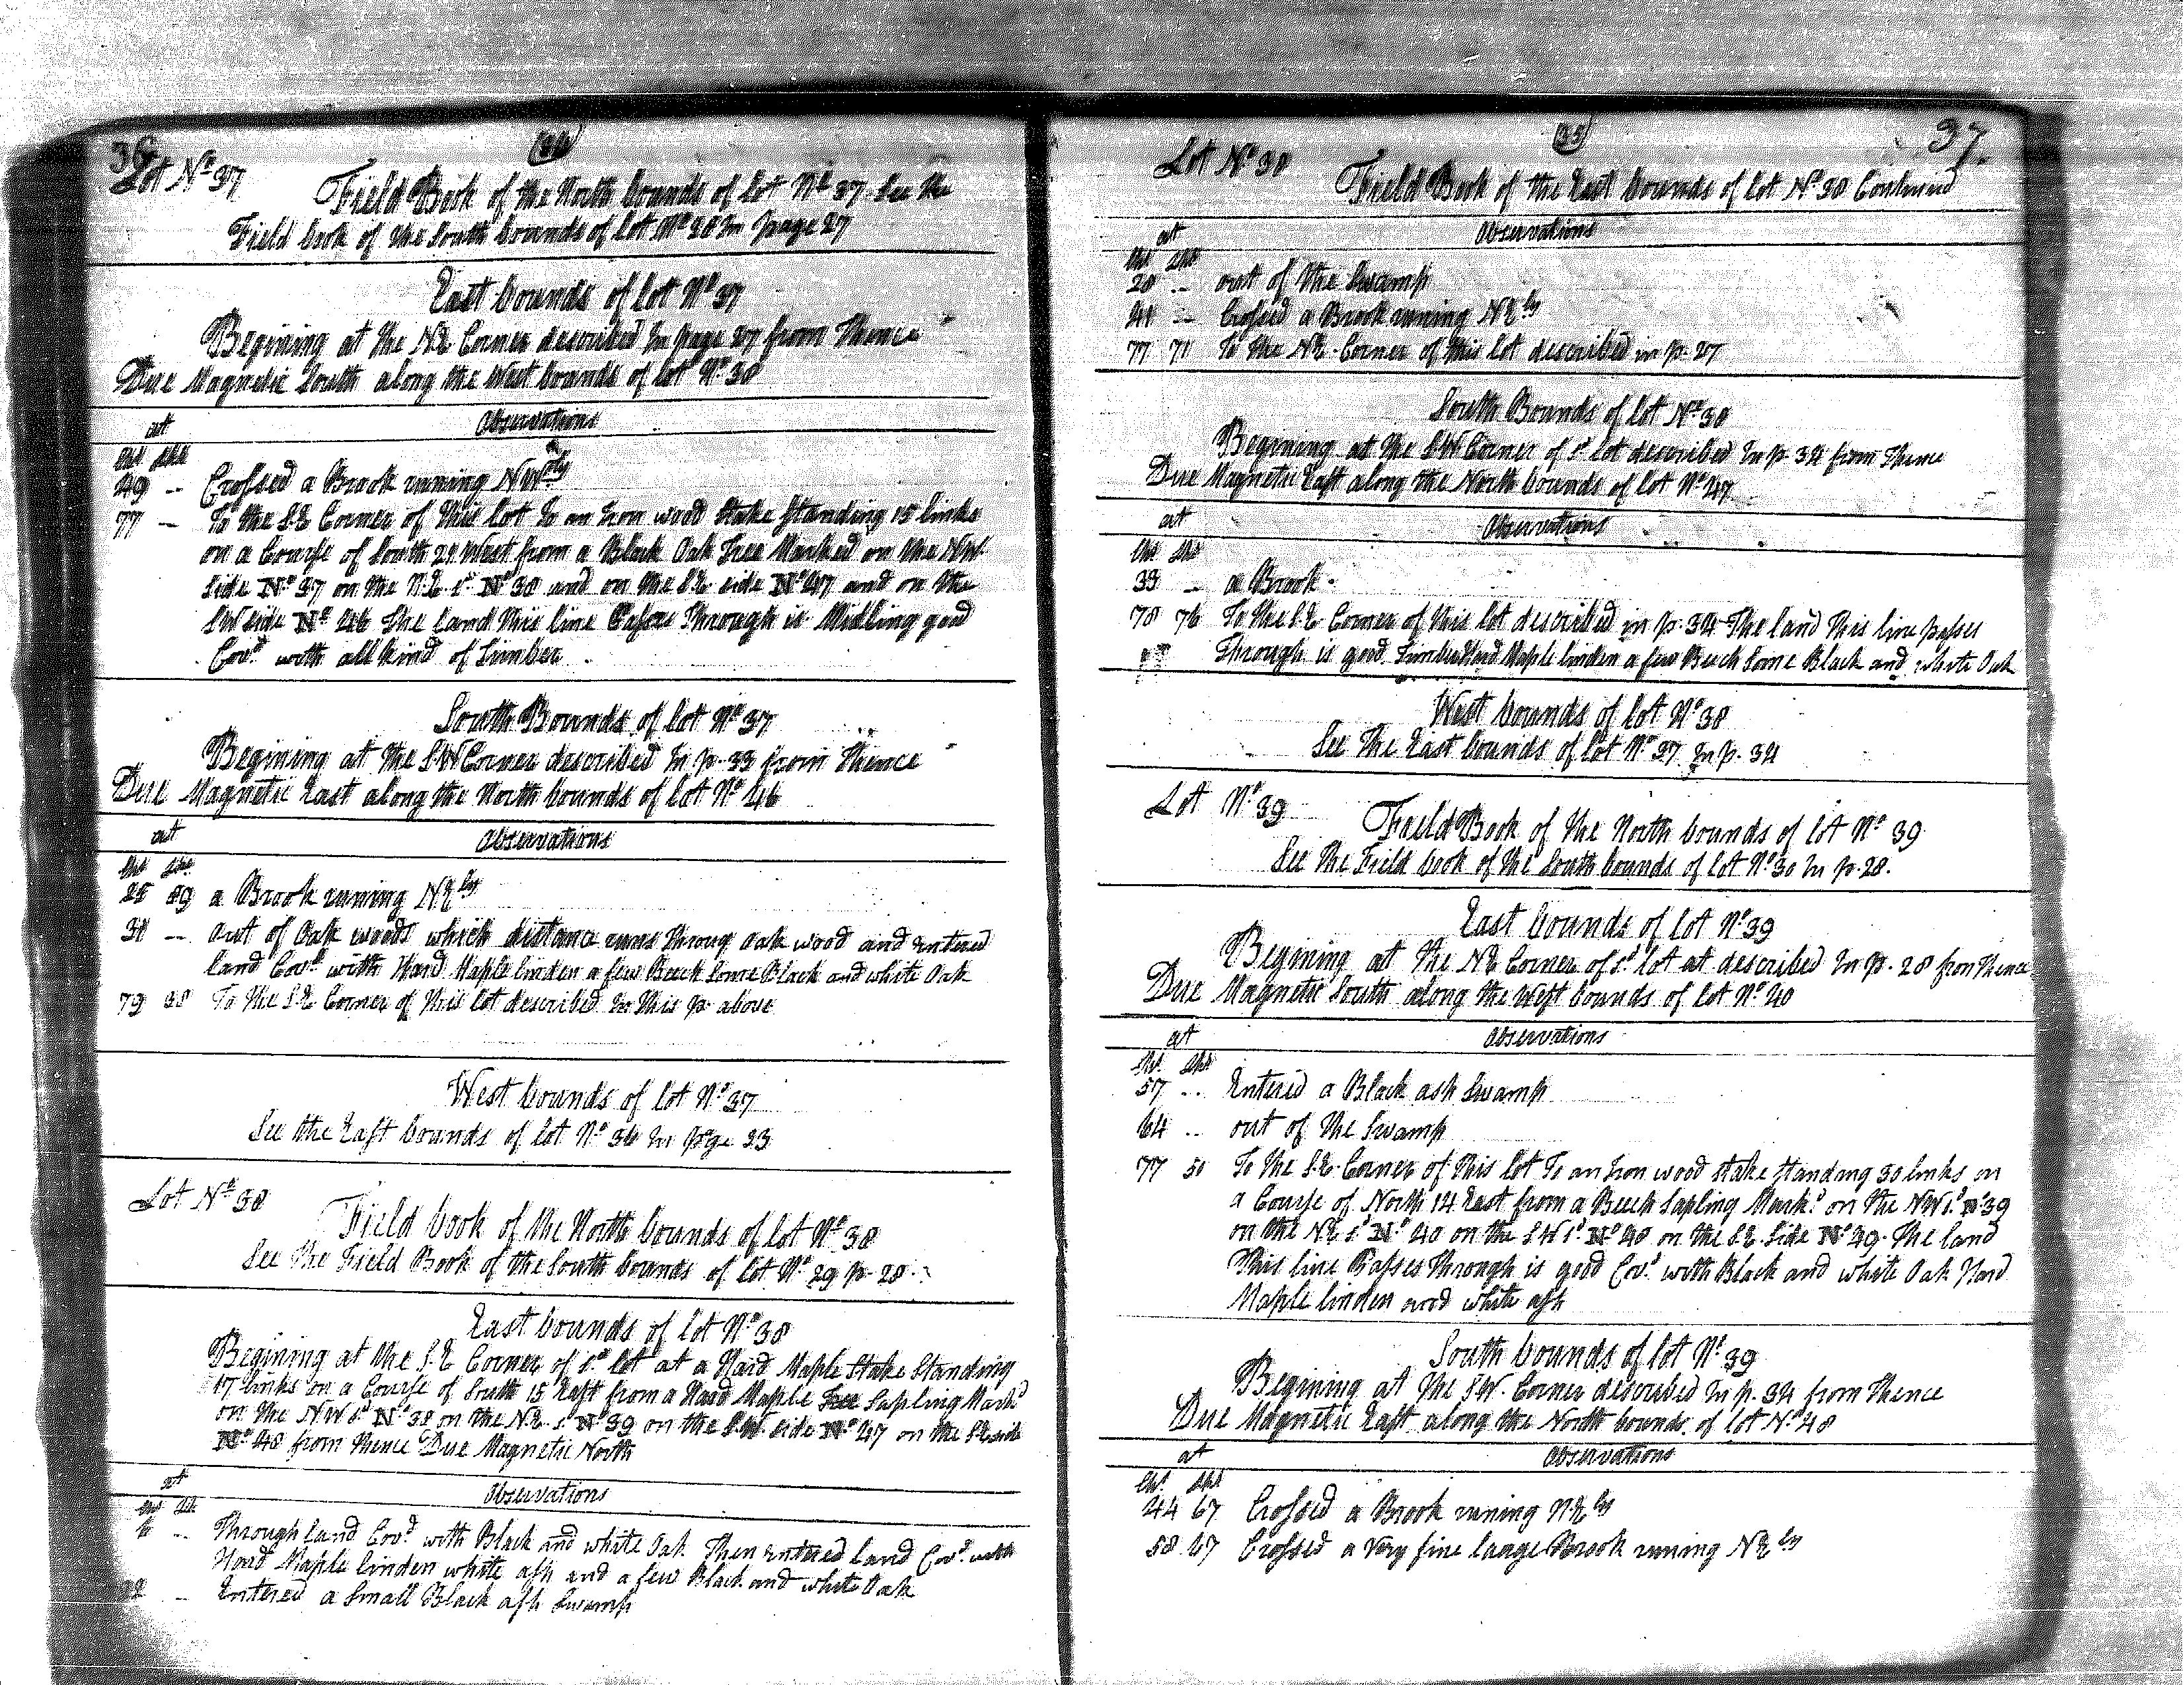 36
(34)
Lot No 37
Field Book of the North bounds of lot No 37. See the
Field book of the South bounds of lot No 28 In page 27
East bounds of lot No 37
Begining at the NE Corner described In page 27 from Thence
Due Magnetic South along the West bounds of lot No 38
at Observations
Chs Lks
49 -- Crossed a Brook runing NWly
77 -- To the S.E Corner of this lot To an Iron wood Stake standing 15 links
on a Course of South 24 West from a Black Oak Tree Marked on the NW
side No 37 on the N.E sd No 38 and on the S.E side No 47 and on the
SW side No 46 The land this line Passes Through is Midling good
Covd with all Kind of Timber
South Bounds of lot No 37
Begining at the S.W Corner described In p. 33 from Thence
Due Magnetic East along the North bounds of lot No 46
at Observations
Chs Lks
25 89 a Brook runing NEly
31 -- out of Oak woods which distance runs Throug Oak wood and Entered
land Covd with Hard Maple linden a few Beech Some Black and white Oak
79 38 To the S.E Corner of this lot described In this p. above
West bounds of lot No 37
See the East bounds of lot No 36 In page 33
Lot No 38
Field book of the North bounds of lot No 38
See the Field Book of the South bounds of lot No 29 p. 28
East bounds of lot No 38
Begining at the S.E Corner of sd lot at a Hard Maple Stake Standing
17 links on a Course of South 15 East from a Hard Maple Tree Sapling Markd
on the NW sd No 38 on the NE. s No 39 on the S.W. side No 47 on the SE side
No 48 from thence Due Magnetic North
at Observations
Chs Lks
-- Through land Covd with Black and white Oak Then Entered land Covd with
Hard Maple linden white ash and a few Black and white Oak
-- Entered a Small Black ash Swamp
(35)
37.
Lot No 38
Field Book of the East bounds of lot No 38 Continued
at Observations
Chs Lks
28 -- out of the Swamp
41 -- Crossed a Brook runing NEly
77 71 To the NE. Corner of this lot described in p. 27
South Bounds of lot No 38
Begining at the S.W Corner of sd lot described In p. 34 from Thence
Due Magnetic East along the North bounds of lot No 47
at Observations
Chs Lks
33 -- a Brook.
78 76 To the S.E Corner of this lot described in p. 34 The land This line passes
Through is good Timber Hard Maple linden a few Beech Some Black and white Oak
West bounds of lot No 38
See The East bounds of lot No 37 In p. 34
Lot No 39
Field Book of the North bounds of lot No 39
See The Field book of the South bounds of lot No 30 In p. 28.
East bounds of lot No 39
Begining at the NE Corner of sd lot at described In p. 28 from Thence
Due Magnetic South along the West bounds of lot No 40
at Observations
Chs Lks
57 -- Entered a Black ash Swamp
64 -- out of the Swamp
77 50 To the S.E. Corner of this lot To an Iron wood stake standing 30 links on
a Course of North 14 East from a Beech Sapling Markd on the NW sd No 39
on the NE sd No 40 on the SW sd No 48 on the S.E. Side No 49. The land
This line Passes Through is good Covd with Black and white Oak Hard
Maple linden and white ash
South bounds of lot No 39
Begining at The SW. Corner described In p. 34 from Thence
Due Magnetic East along the North bounds of lot No 48
at Observations
Chs Lks
44 67 Crossed a Brook runing NEly
58 47 Crossed a Very fine large Brook runing NEly